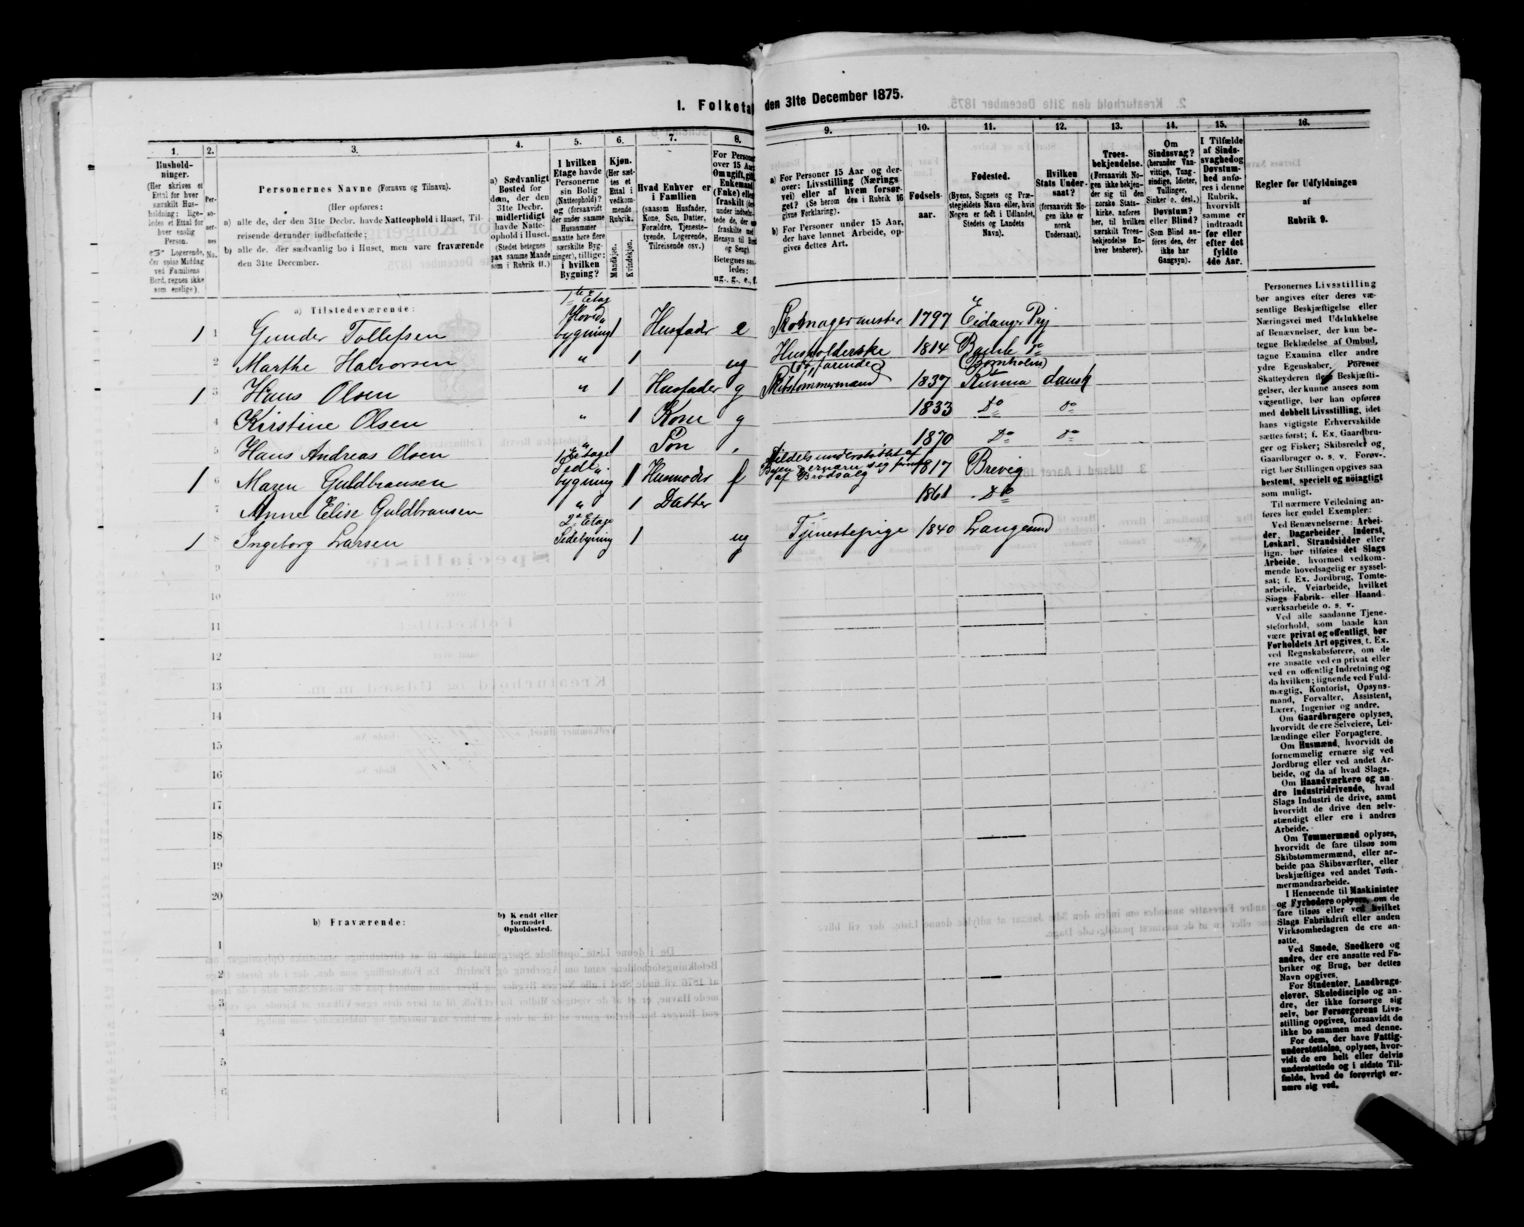 1. Folketal den 31te December 1875.
1. 2. 3. 4. 5. 6. 7. 8. 9. 10. 11. 12. 13. 14. 15. 16.
Hushold-
ninger.
(Her skrives et
Ettal for hver
særskilt Hus-
holdning; lige-
ledes et Ettal for
hver enslig
Person.
Logerende,
der spise Middag
ved Familiens
Bord, regnes ikke
som enslige).
Per-
so-
ner-
nes
No.
Personernes Navne (Fornavn og Tilnavn).
(Her opføres:
a) alle de, der den 31te Decbr. havde Natteophold i Huset, Til-
reisende derunder indbefattede;
b) alle de, der sædvanlig bo i Huset, men vare fraværende
den 31te December.
a) Sædvanligt
Bosted for
dem, der den
31te Decbr.
midlertidigt
havde Natte-
ophold i Huset.
(Stedet betegnes
paa samme Maade
som i Rubrik 11.)
I hvilken
Etage havde
Personerne
sin Bolig
(Natteophold)?
og (forsaavidt
der under samme
Husnummer
maatte høre flere
særskilte Byg-
ninger), tillige:
i hvilken
Bygning?
Kjøn.
(Her sæt-
tes et
Ettal i
vedkom-
mende
Rubrik.
Mandkjøn.
Kvindekjøn.
Hvad Enhver er
i Familien
(saasom Husfader,
Kone, Søn, Datter,
Forældre, Tjeneste-
tyende, Logerende,
Tilreisende osv.)
For Personer
over 15 Aar:
Om ugift, gift,
Enkemand
(Enke) eller
fraskilt
Betegnes saa-
ledes:
ug., g., e., f.
a) For Personer 15 Aar og der-
over: Livsstilling (Nærings-
vei) eller af hvem forsør-
get? (Se herom den i Rubrik 16
givne Forklaring).
b) For Personer under 15 Aar,
der have lønnet Arbeide, op-
gives dettes Art.
Fødsels-
aar.
Fødested.
(Byens, Sognets og Præ-
stegjeldets Navn eller, hvis
Nogen er født i Udlandet,
Stedets og Landets
Navn).
Hvilken
Stats Under-
saat?
(forsaavidt No-
gen ikke er
norsk
Undersaat).
Troes-
bekjendelse.
(Forsaavidt No-
gen ikke bekjen-
der sig til den
norske Stats-
kirke, anføres
her, til hvilken
særskilt Troes-
bekjendelse En-
hver henhører).
Om
Sindssvag?
(herunder Van-
vittige, Tung-
sindige, Idioter,
Tullinger,
Sinker o. desl.)
Døvstum?
eller Blind?
(Som Blind an-
føres den, der
ikke har
Gangsyn).
I Tilfælde
af Sinds-
svaghed og
Døvstum-
hed anfø-
res i denne
Rubrik,
hvorvidt
samme er
indtraadt
før eller
efter det
fyldte
4de Aar.
Regler for Udfyldningen
af
Rubrik 9.
a) Tilstedeværende:
1 1 Gunder Tollefsen 1ste Etag Hoved bygning 1 Husfader e Skomagermester 1797 Eidanger Pgj
2 Marthe Halvorsen " 1 ug Husholderske 1814 do
1 3 Hans Olsen " 1 Husfader g Skibstømmermand 1837 (Bornholm) Rønne dansk
4 Kirstine Olsen " 1 Kone g 1833 Do do
5 Hans Andreas Olsen " 1 Søn 1870 Do do
1 6 Maren Guldbransen 1 Etage Sidebygning 1 Husmoder f Tildels understøttet af Byen ernærer sig af Brødsalg 1817 Brevig
7 Anne Elise Guldbransen " 1 Datter 1861 Do
1 8 Ingeborg Larsen 2de Etage Sidebygning 1 ug Tjenestepige 1840 Langesund
9
10
11
12
13
14
15
16
17
18
19
20
b) Fraværende:
b) Kjendt eller
formodet
Opholdssted.
1
2
3
4
5
6
Personernes Livsstilling
bør angives efter deres væ-
sentlige Beskjæftigelse eller
Næringsvei med Udelukkelse
af Benævnelser, der kun be-
tegne Beklædelse af Ombud,
tagne Examina eller andre
ydre Egenskaber. Forener
Skatteyderen flere Beskjæfti-
gelser, der kunne ansees som
væsentlige, bør han opføres
med dobbelt Livsstilling, idet
hans vigtigste Erhvervskilde
sættes først; f. Ex. Gaardbru-
ger og Fisker; Skibsreder og
Gaardbruger o. s. v. Forøv-
rigt bør Stillingen opgives saa
bestemt, specielt og nøiagtigt
som muligt.
Til nærmere Veiledning an-
føres her endel Exempler:
Ved Benævnelserne: Arbei-
der, Dagarbeider, Inderst,
Løskarl, Strandsidder eller
lign. bør tilføies det Slags
Arbeide, hvormed vedkom-
mende hovedsagelig er syssel-
sat; f. Ex. Jordbrug, Tomte-
arbeide, Veiarbeide, hvilket
Slags Fabrik- eller Haand-
værksarbeide o. s. v.
Ved alle saadanne Tjene-
steforhold, som baade kan
være privat og offentligt, bør
Forholdets Art opgives, f. Ex.
ved Regnskabsførere, om de
ere ansatte ved en privat eller
ved en offentlig Indretning og
da hvilken; lignende ved Fuld-
mægtig, Kontorist, Opsyns-
mand, Forvalter, Assistent,
Lærer, Ingeniør og andre.
Om Gaardbrugere oplyses,
hvorvidt de ere Selveiere, Lei-
lændinge eller Forpagtere.
Om Husmænd, hvorvidt de
fornemmelig ernære sig ved
Jordbrug eller ved andet Ar-
beide, og da af hvad Slags.
Om Haandværkere og an-
dre Industridrivende, hvad
Slags Industri de drive, samt
hvorvidt de drive den selv-
stændigt eller ere i andres
Arbeide.
Om Tømmermænd oplyses,
hvorvidt de fare tilsøs som
Skibstømmermænd, eller ar-
beide paa Skibsværfter, eller
beskjæftiges ved andet Tøm-
mermandsarbeide.
I Henseende til Maskinister
og Fyrbødere oplyses, om de
fare tilsøs eller ved hvilket
Slags Fabrikdrift eller anden
Virksomhedsgren de ere an-
satte.
Ved Smede, Snedkere og
andre, der ere ansatte ved Fa-
briker og Brug, bør dettes
Navn opgives.
For Studenter, Landbrugs-
elever, Skoledisciple og an-
dre, der ikke forsørge sig
selv, bør Forsørgerens Livs-
stilling opgives, forsaavidt de
ikke bo sammen med denne.
For dem, der have Fattig-
understøttelse, oplyses, hvor-
vidt de ere helt eller delvis
understøttede og i sidste Til-
fælde, hvad de forøvrigt er-
nære sig ved.